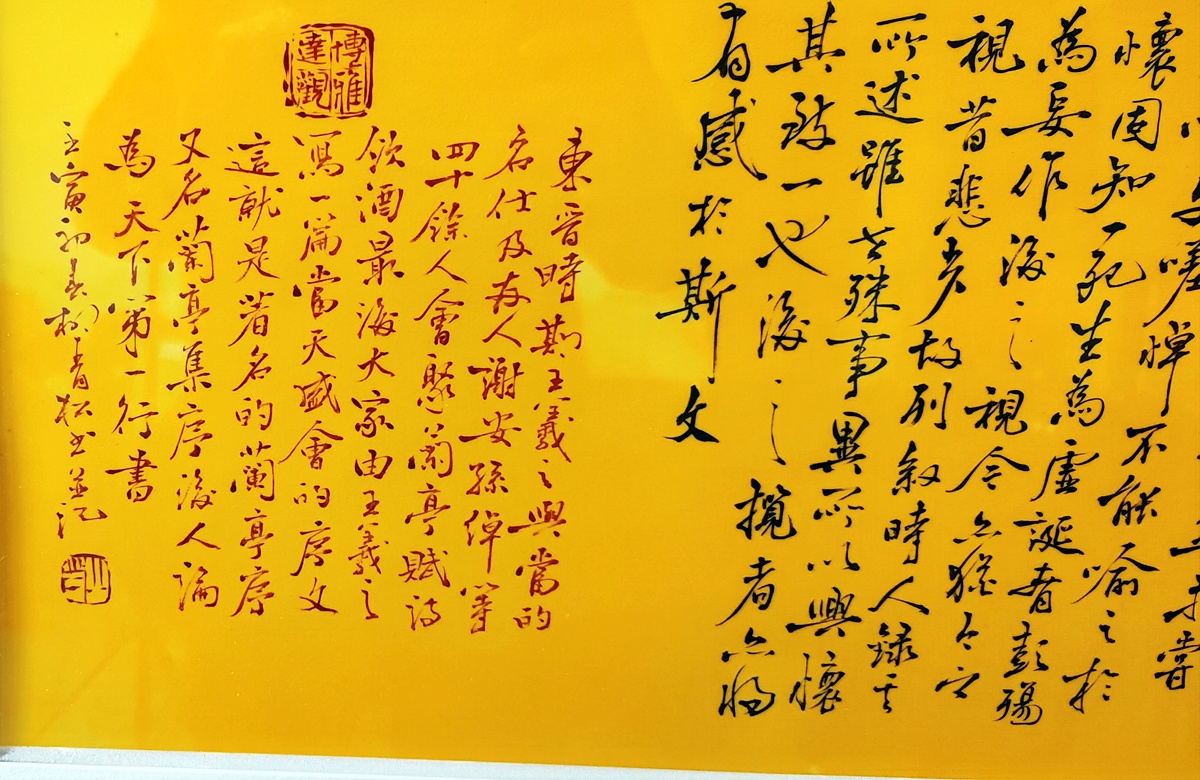 嘗
文嗟悼不能喻之於
懷固知一死生為虛誕齊彭殤
為妄作後之視今亦猶今之
視昔悲夫故列敘時人錄其
所述雖世殊事異所以興懷
其致一也後之攬者亦將
有感於斯文
博雅達觀
東晉時期王羲之與當的
名仕及友人謝安孫綽等
四十餘人會聚蘭亭賦詩
飲酒最後大家由王羲之
寫一篇當天盛會的序文
這就是著名的蘭亭序
又名蘭亭集序後人論
為天下第一行書
壬寅初春柳青松書並記